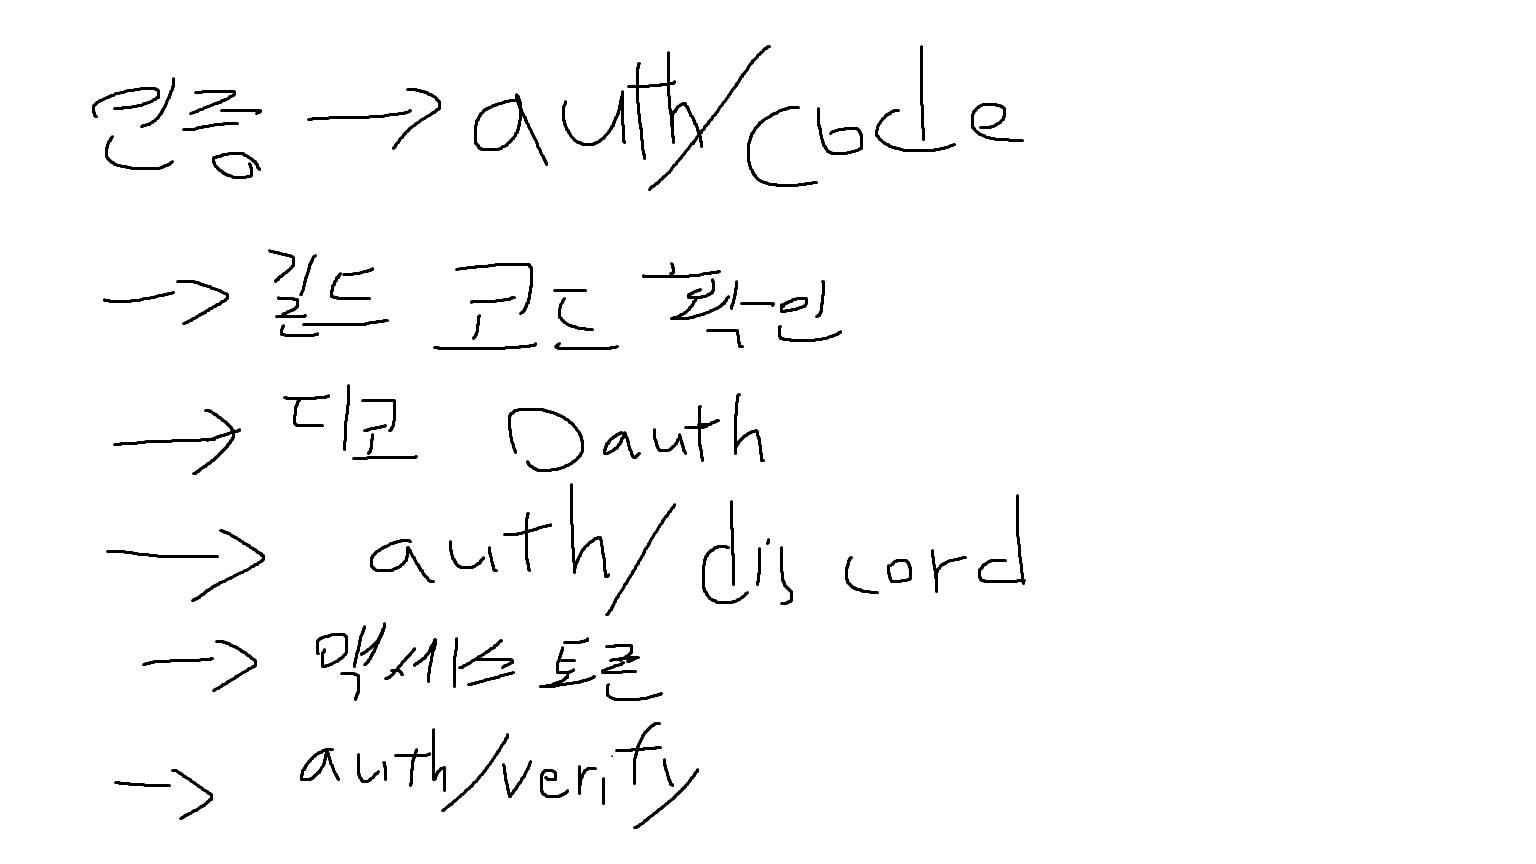 인증 → auth/code
→ 길드 코드 확인
→ 디코 Oauth
→ auth/discord
→ 액세스 토큰
→ auth/verify